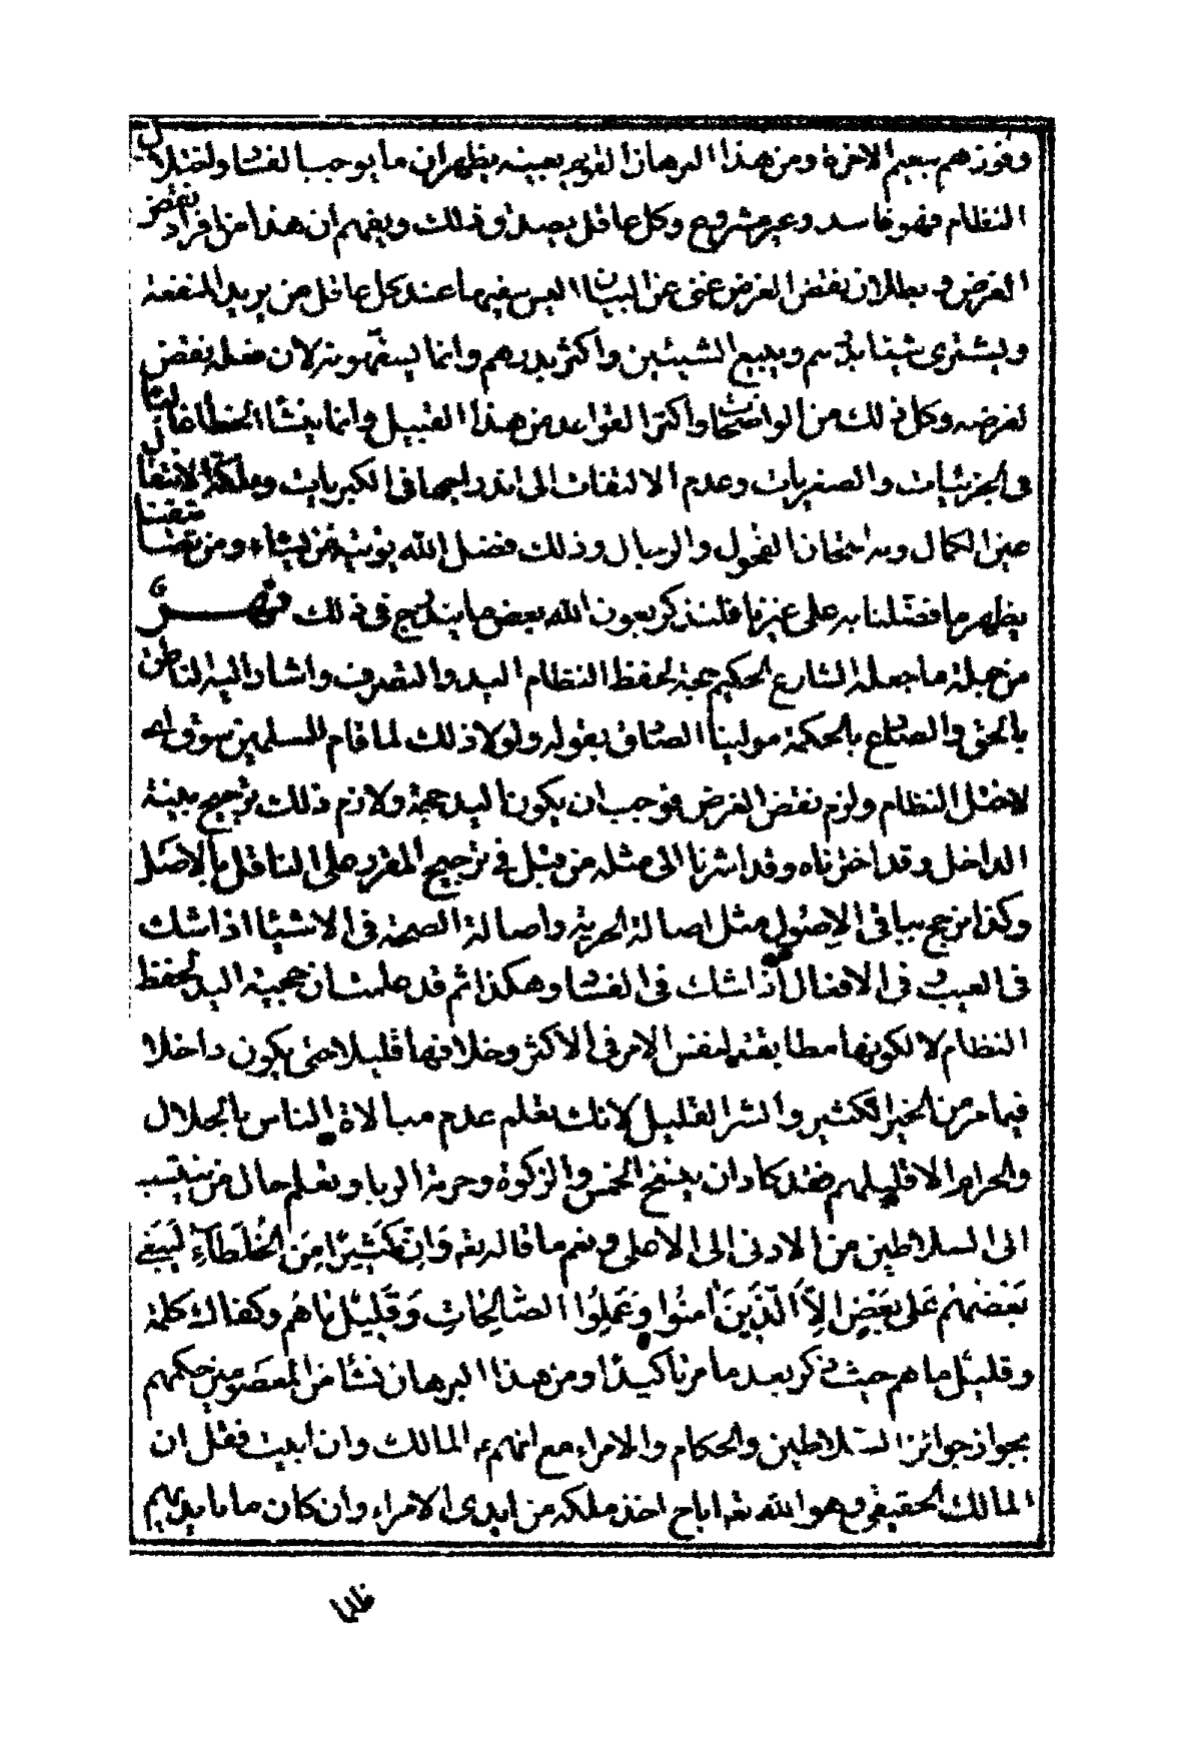 وفوزهم بنعيم الاخرة ومن هذا البرهان القويم بعينه يظهر ان ما يوجب الفسا واختلال
النظام فهو فاسد وغير مشروع وكل عاقل يصدق ذلك ويفهم ان هذا من افراد نقض
الغرض وبطلان نقض الغرض غنى عن البيان اليس سفيها عند كل عاقل من يريد المنفعة
ويشترى شيئا بدرهم ويبيع الشيئين واكثر بدرهم وانما يسفهونه لان فعله نقض
لغرضه وكل ذلك من الواضحات واكثر القواعد من هذا القبيل وانما ينشأ الخطأ غالبا
فى الجزئيات والصغريات وعدم الالتفات الى اندراجها فى الكبريات وملكة الانتقال
عين الكمال وبه امتحان الفحول والرجال وذلك فضل الله يؤتيه من يشاء ومن
يظهر ما فضلنا به على غيرنا فلنذكر بعون الله بعض ما يندرج فى ذلك
من جملة ما جعله الشارع الحكيم حجة لحفظ النظام اليد والتصرف واشار اليه الناطق
بالحق والصادع بالحكمة مولينا الصادق بقوله ولولا ذلك لما قام للمسلمين سوق اى
لاختل النظام ولزم نقض الغرض فوجب ان يكون اليد حجة ولازم ذلك ترجيح بينة
الداخل وقد اخترناه وقد اشرنا الى مثله من قبل في ترجيح المقرر على الناقل بالاصل
وكذا نرجح بباقى الاصول مثل اصالة الحرية واصالة الصحة فى الاشيئا اذا شك
فى العيب وفى الافعال اذا شك فى الفسا وهكذا ثم قد علمت ان حجية اليد لحفظ
النظام لا لكونها مطابقة لنفس الامر فى الاكثر وخلافها قليلا حتى يكون داخلا
فيما مر من الخير الكثير والشر القليل لانك تعلم عدم مبالاة الناس بالحلال
والحرام الا قليلهم فقد كاد ان ينسخ الخمس والزكوة وحرمة الربا وتعلم حال من ينتسب
الى السلاطين من الادنى الى الاعلى ونعم ما قاله تعه وَاِنَّ كَثِيرًا مِنَ الْخُلَطَآءِ لَيَبْغى
بَعْضُهُمْ عَلى بَعْضٍ اِلاَّ الَّذينَ اٰمَنُوا وَعَمِلُوا الصّالِحاتِ وَقَليلٌ ماهُم وكفاك كلمة
وقليل ما هم حيث ذكر بعد ما مر تاكيدًا ومن هذا البرهان نشأ من المعصومين حكمهم
بجواز جوائز السلاطين والحكام والامراء مع انهم غير المالك وان ابيت فقل ان
المالك الحقيقى وهو الله تعه اباح اخذ ملكه من ايدى الامراء وان كان ما بايديهم
ظلما